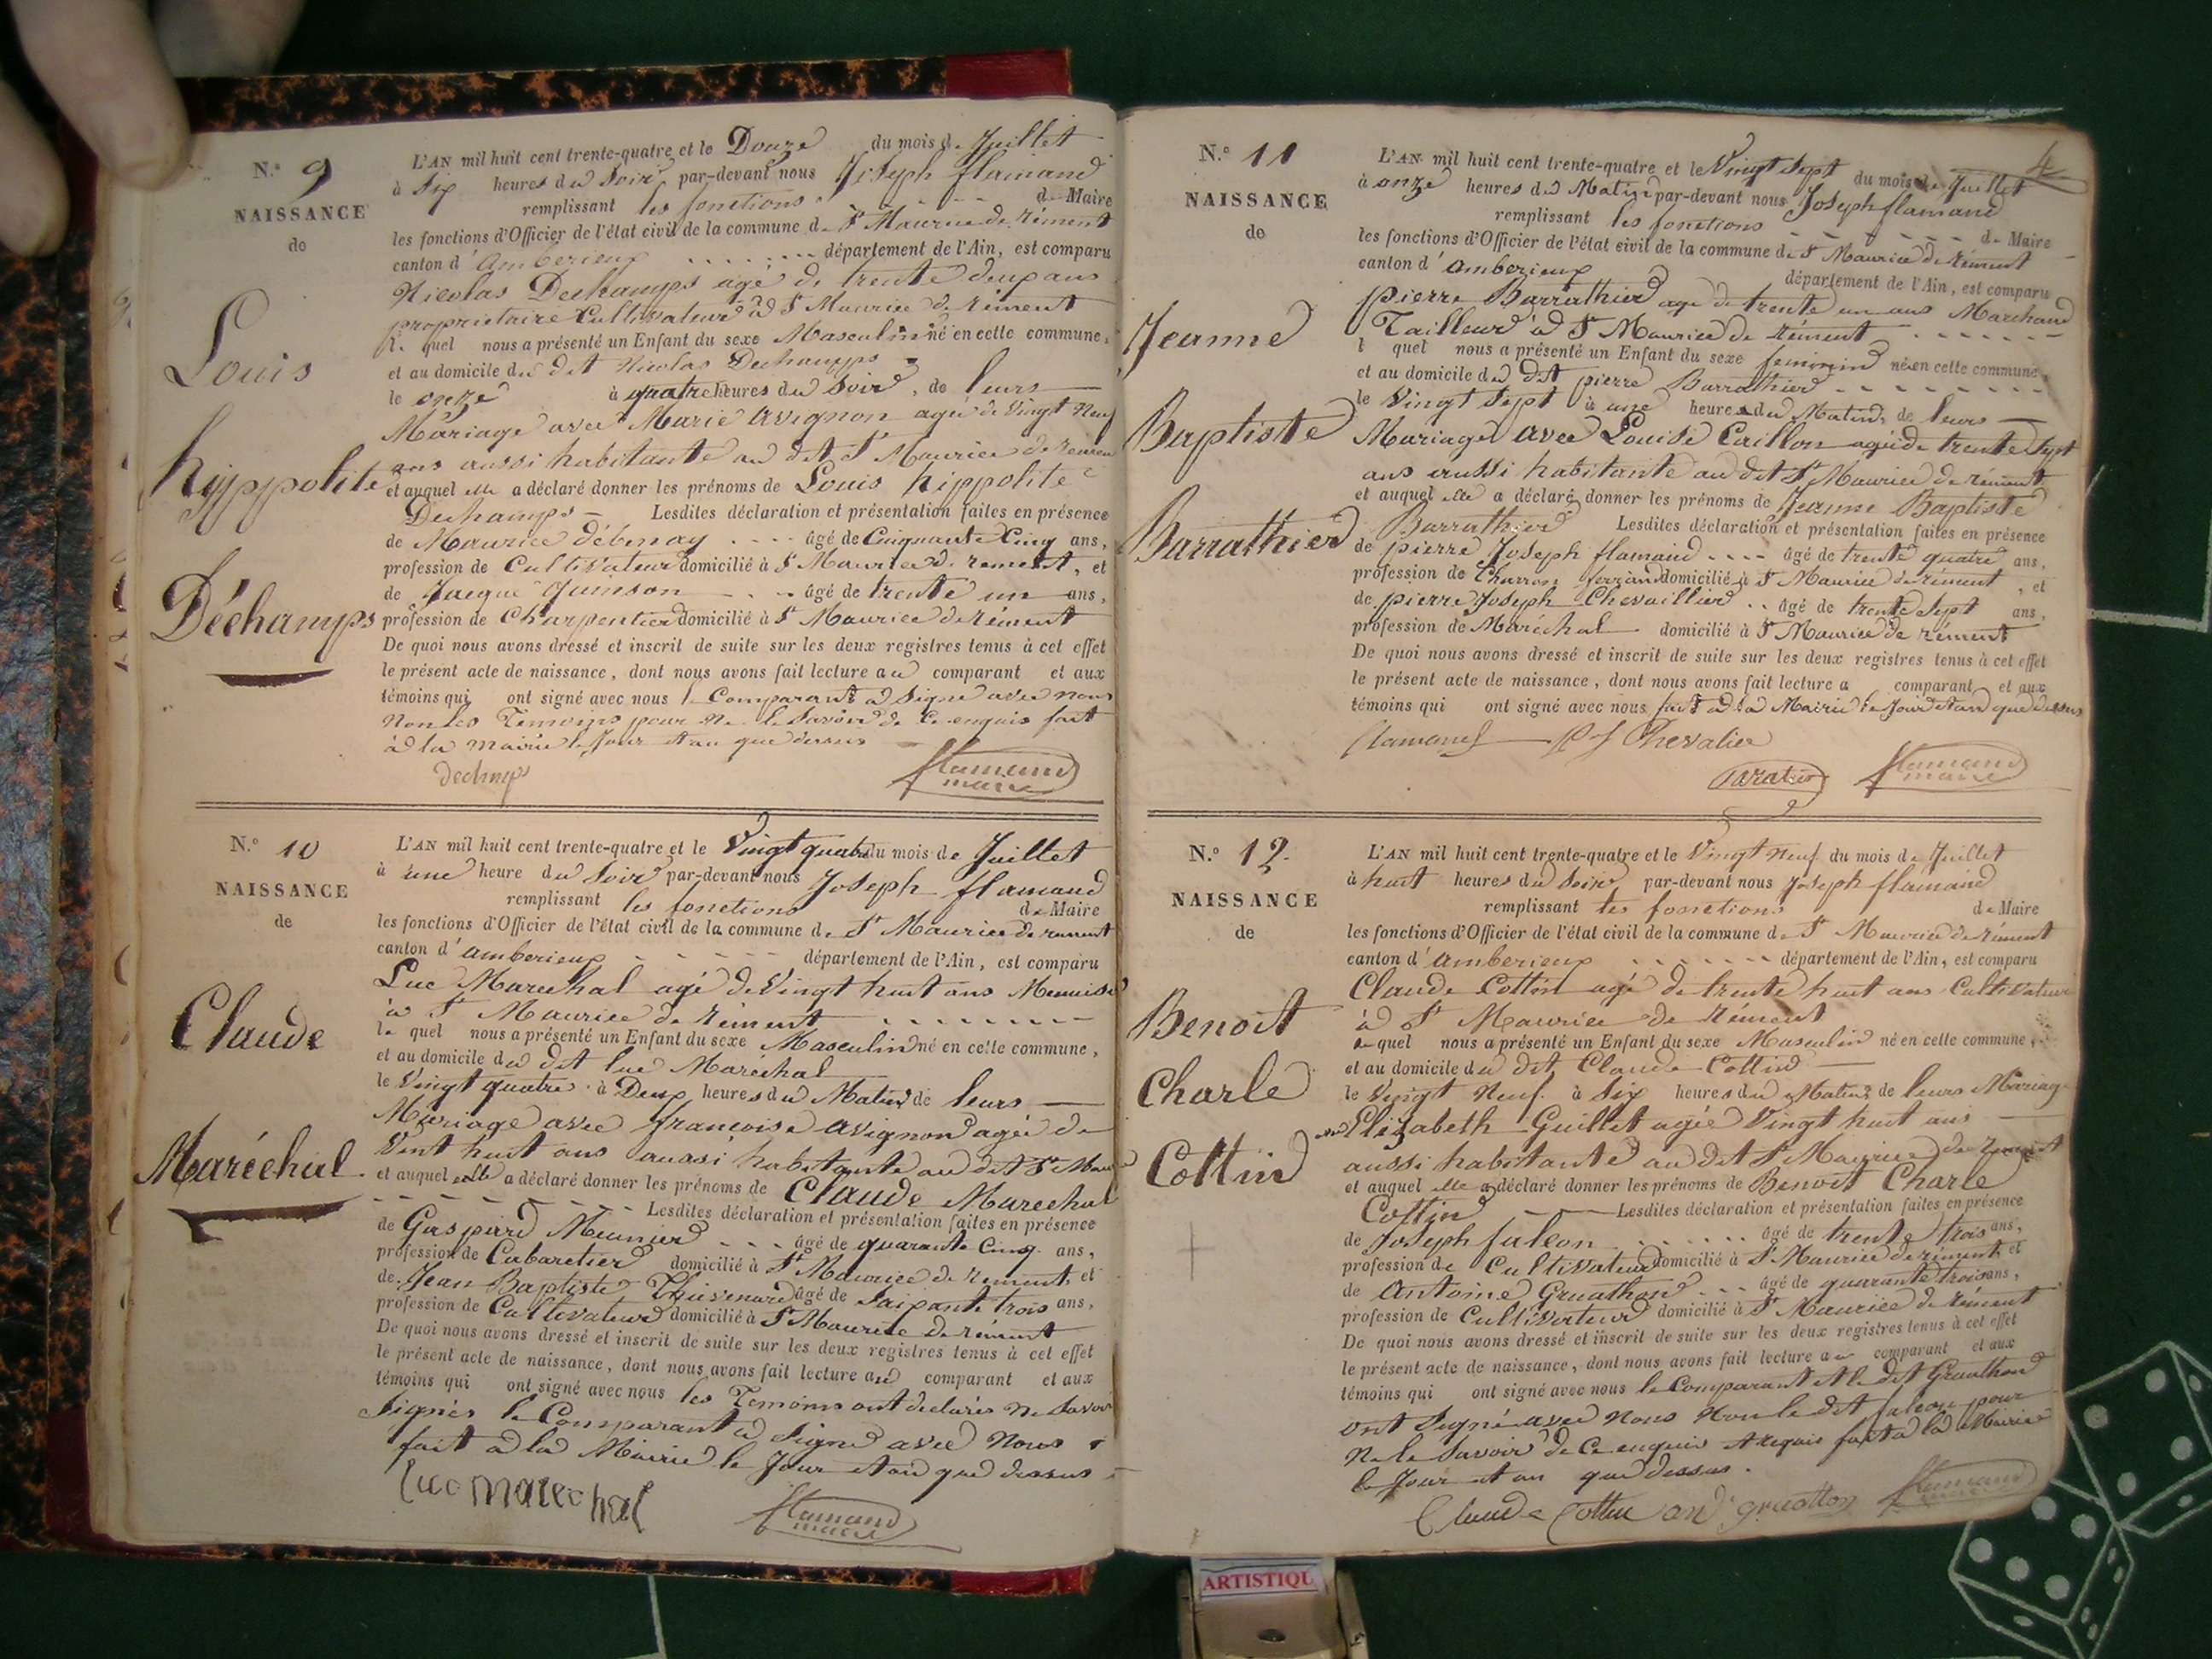 N.o 9
NAISSANCE
de
Louis
hypppolite
Déchamps
L'AN mil huit cent trente-quatre et le Douze du mois de Juillet
à Six heures du Soir par-devant nous Joseph flamand
remplissant les fonctions de Maire
les fonctions d'Officier de l'état civil de la commune de St Maurice de rément
canton d'amberieux département de l'Ain, est comparu
Nicolas Dechamps agé de trente deux ans
propriétaire Cultivateur à St Maurice de rément
le quel nous a présenté un Enfant du sexe Masculin né en cette commune,
et au domicile du dit Nicolas Dechamps
le onze à quatre heures du Soir, de leurs
Mariage avec Marie avignon agée de Vingt Neuf
ans aussi habitante au dit St Maurice de rémen
et auquel elle a déclaré donner les prénoms de Louis hippolite
Dechamps - Lesdites déclaration et présentation faites en présence
de Maurice débenay âgé de Cinquante Cinq ans,
profession de Cultivateur domicilié à St Maurice de rement, et
de Jacque Juinson âgé de trente un ans,
profession de Charpentier domicilié à St Maurice de rément
De quoi nous avons dressé et inscrit de suite sur les deux registres tenus à cet effet
le présent acte de naissance, dont nous avons fait lecture au comparant et aux
témoins qui ont signé avec nous le Comparant a Signé avec nous
Non les Témoins pour ne le Savoir de ce enquis fait
à la mairie le Jour et an que dessus
dechmps
flamand
maire
N.o 10
NAISSANCE
de
Claude
Maréchal
L'AN mil huit cent trente-quatre et le Vingt quatre du mois de Juillet
à une heure du Soir par-devant nous Joseph flamand
remplissant les fonctions de Maire
les fonctions d'Officier de l'état civil de la commune de St Maurice de rement
canton d'amberieux département de l'Ain, est comparu
Luc Marechal agé de Vingt huit ans Menuisié
à St Maurice de rément
le quel nous a présenté un Enfant du sexe Masculin né en cette commune,
et au domicile du dit luc Maréchal
le Vingt quatre à Deux heures du Matin de leurs
Mariage avec francoise avignon agée de
Vint huit ans aussi habitante au dit St Mau
et auquel elle a déclaré donner les prénoms de Claude Marechal
Lesdites déclaration et présentation faites en présence
de Gaspard Meunier âgé de quarante Cinq ans,
profession de Cabaretier domicilié à St Maurice de rement, et
de Jean Baptiste Thévenard âgé de Saixante trois ans,
profession de Cultivateur domicilié à St Maurice de rément
De quoi nous avons dressé et inscrit de suite sur les deux registres tenus à cet effet
le présent acte de naissance, dont nous avons fait lecture au comparant et aux
témoins qui ont signé avec nous les Temoins ont declarés ne Savoir
Signés le Comparant a Signé avec Nous
fait à la Mairie le Jour et an que dessus
luc marechal
flamand
maire
4
N.o 11
NAISSANCE
de
Jeanne
Baptiste
Barrathier
L'AN mil huit cent trente-quatre et le Vingt Sept du mois de Juillet
à onze heures du Matin par-devant nous Joseph flamand
remplissant les fonctions de Maire
les fonctions d'Officier de l'état civil de la commune de St Maurice de rément
canton d'amberieux département de l'Ain, est comparu
pierre Barrathier age de trente un ans Marchand
Tailleur à St Maurice de rément
l quel nous a présenté un Enfant du sexe feminin née en cette commune,
et au domicile du dit pierre Barrathier
le Vingt Sept à une heure du Matin, de leurs
Mariage avec Louise Caillon agée de trente Sept
ans aussi habitante au dit St Maurice de rément
et auquel elle a déclaré donner les prénoms de Jeanne Baptiste
Barrathier Lesdites déclaration et présentation faites en présence
de pierre Joseph flamand âgé de trente quatre ans,
profession de Charron domicilié à St Maurice de rément, et
de pierre Joseph Chevaillier âgé de trente Sept ans,
profession de Maréchal domicilié à St Maurice de rément
De quoi nous avons dressé et inscrit de suite sur les deux registres tenus à cet effet
le présent acte de naissance, dont nous avons fait lecture a comparant et aux
témoins qui ont signé avec nous fait à la Mairie le Jour et an que dessus
flamand P J Chevalier
Baratier
flamand
maire
N.o 12.
NAISSANCE
de
Benoit
Charle
Cottin
L'AN mil huit cent trente-quatre et le Vingt Neuf du mois de Juillet
à huit heures du Soir par-devant nous Joseph flamand
remplissant les fonctions de Maire
les fonctions d'Officier de l'état civil de la commune de St Maurice de rément
canton d'amberieux département de l'Ain, est comparu
Claude Cottin agé de trente huit ans Cultivateur
à St Maurice de rément
le quel nous a présenté un Enfant du sexe Masculin né en cette commune,
et au domicile du dit Claude Cottin
le Vingt Neuf à Six heures du Matin, de leurs Mariage
avec Elizabeth Guillet agée Vingt huit ans
aussi habitante au dit St Maurice de rement
et auquel elle a déclaré donner les prénoms de Benoit Charle
Cottin Lesdites déclaration et présentation faites en présence
de Joseph falcon âgé de trente trois ans,
profession de Cultivateur domicilié à St Maurice de rément, et
de Antoine Gruathon âgé de quarante trois ans,
profession de Cultivateur domicilié à St Maurice de rément
De quoi nous avons dressé et inscrit de suite sur les deux registres tenus à cet effet
le présent acte de naissance, dont nous avons fait lecture au comparant et aux
témoins qui ont signé avec nous le Comparant et le dit Gruathon
ont Signé avec nous Non le dit falcon pour
Ne le Savoir de ce enquis et requis fait à la Mairie
le Jour et an que dessus.
Claude Cottin an gruatton
flamand
maire
ARTISTIQU